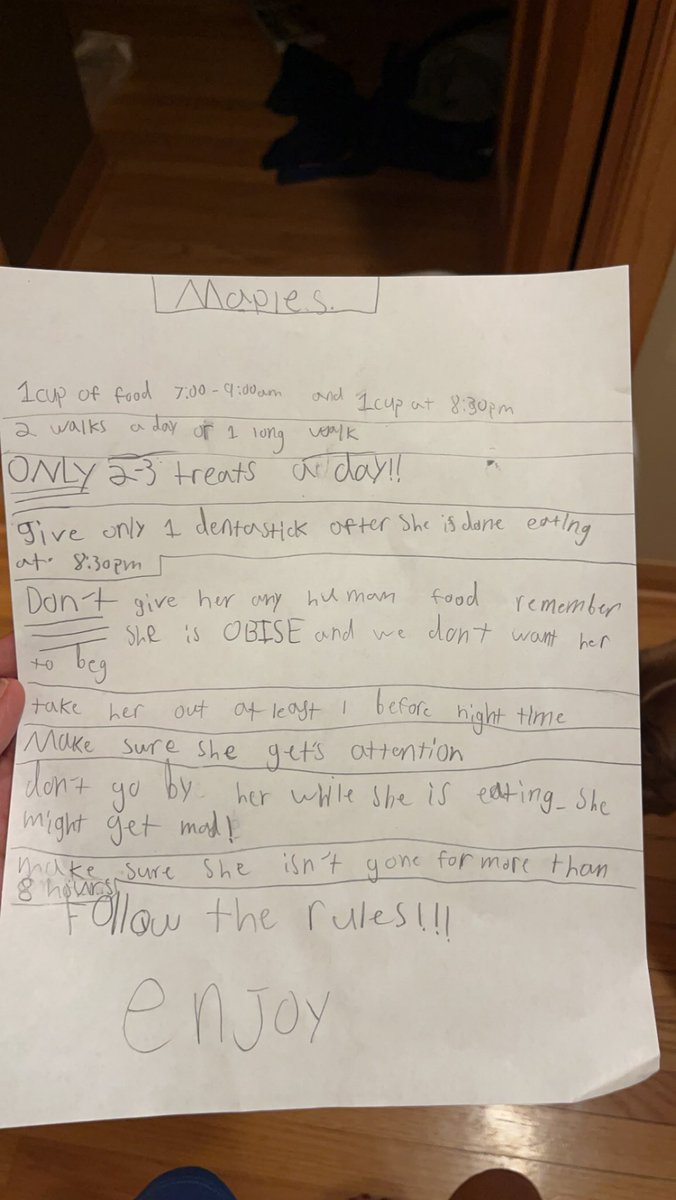 Maple.s.
1cup of food 7:00-9:00am and 1cup at 8:30pm
2 walks a day or 1 long walk
ONLY 2-3 treats a day!!
give only 1 dentastick after she is done eating
at 8:30pm
Don't give her any human food remember
she is OBISE and we don't want her
to beg
take her out at least 1 before night time
Make sure she get's attention
don't go by her while she is eating_ she
might get mad!
make sure she isn't gone for more than
8 hours
Follow the rules!!!
enjoy